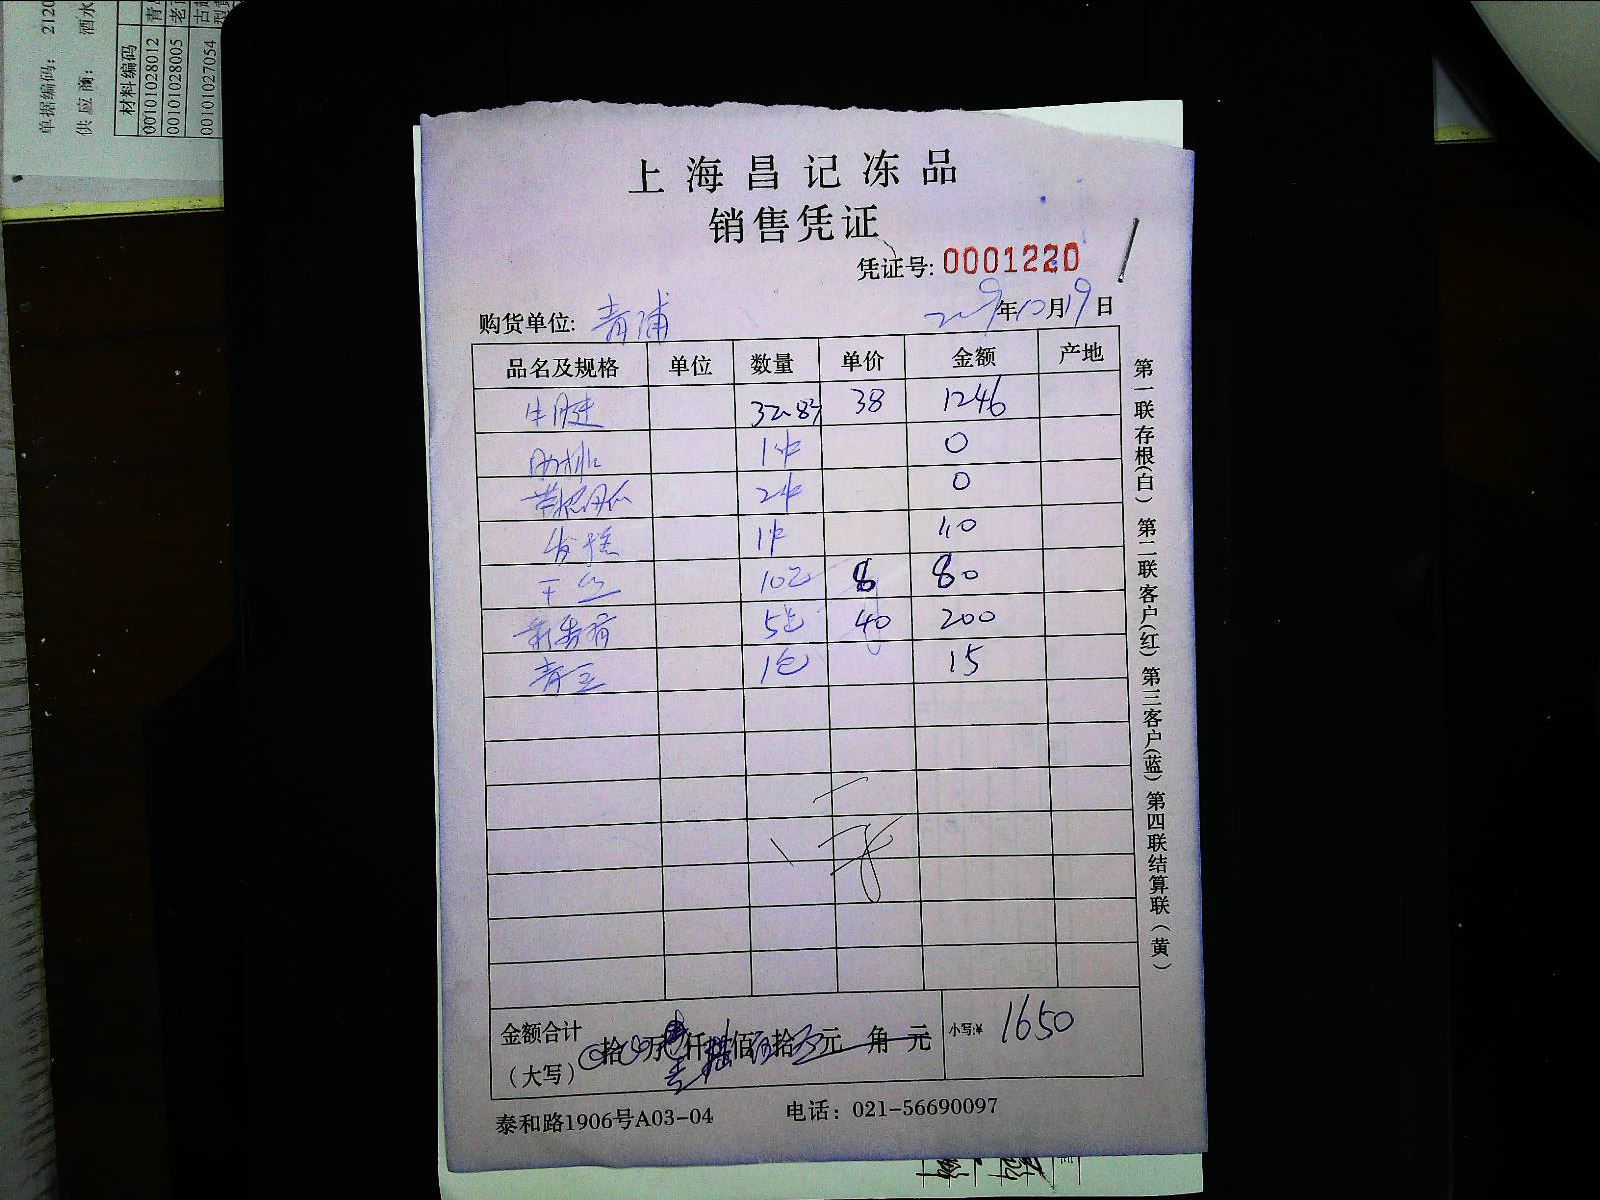 单据编码: 2120
供应商: 酒水
材料编码
00101028012 青
00101028005 老
00101027054 古越
上海昌记冻品
销售凭证
凭证号: 0001220
购货单位: 青浦
2019年10月19日
品名及规格 单位 数量 单价 金额 产地
牛腱 32.8 38 1246
肋排 1件 0
2件 0
1件 110
干丝 10包 8 80
5包 40 200
青豆 1包 15
金额合计 拾 万 仟 佰 拾 元 角 元 小写:¥ 1650
(大写)
泰和路1906号A03-04 电话: 021-56690097
第一联存根(白) 第二联客户(红) 第三客户(蓝) 第四联结算联(黄)